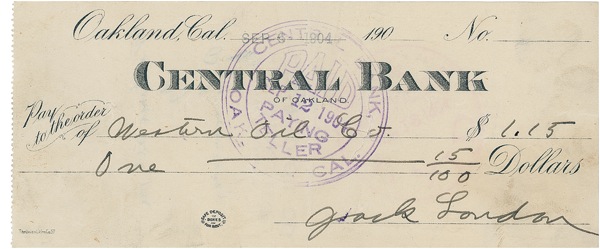 Oakland, Cal. SEP 6 1904 190 No.
CENTRAL BANK
OF OAKLAND
CENTRAL BANK,
PAID
12 1904
PAYING
TELLER
OAK CAL.
Pay to the order of Western Oil Co. $ 1.15
One 15/100 Dollars
Jack London
SAFE DEPOSIT BOXES